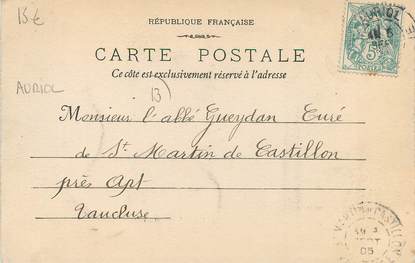 13€
RÉPUBLIQUE FRANÇAISE
CARTE POSTALE
Ce côté est exclusivement réservé à l'adresse
AURIOL
13
Monsieur l'abbé Gueydan Curé
de St Martin de Castillon
près Apt
Vaucluse
AURIOL
5
CASTILLON
05